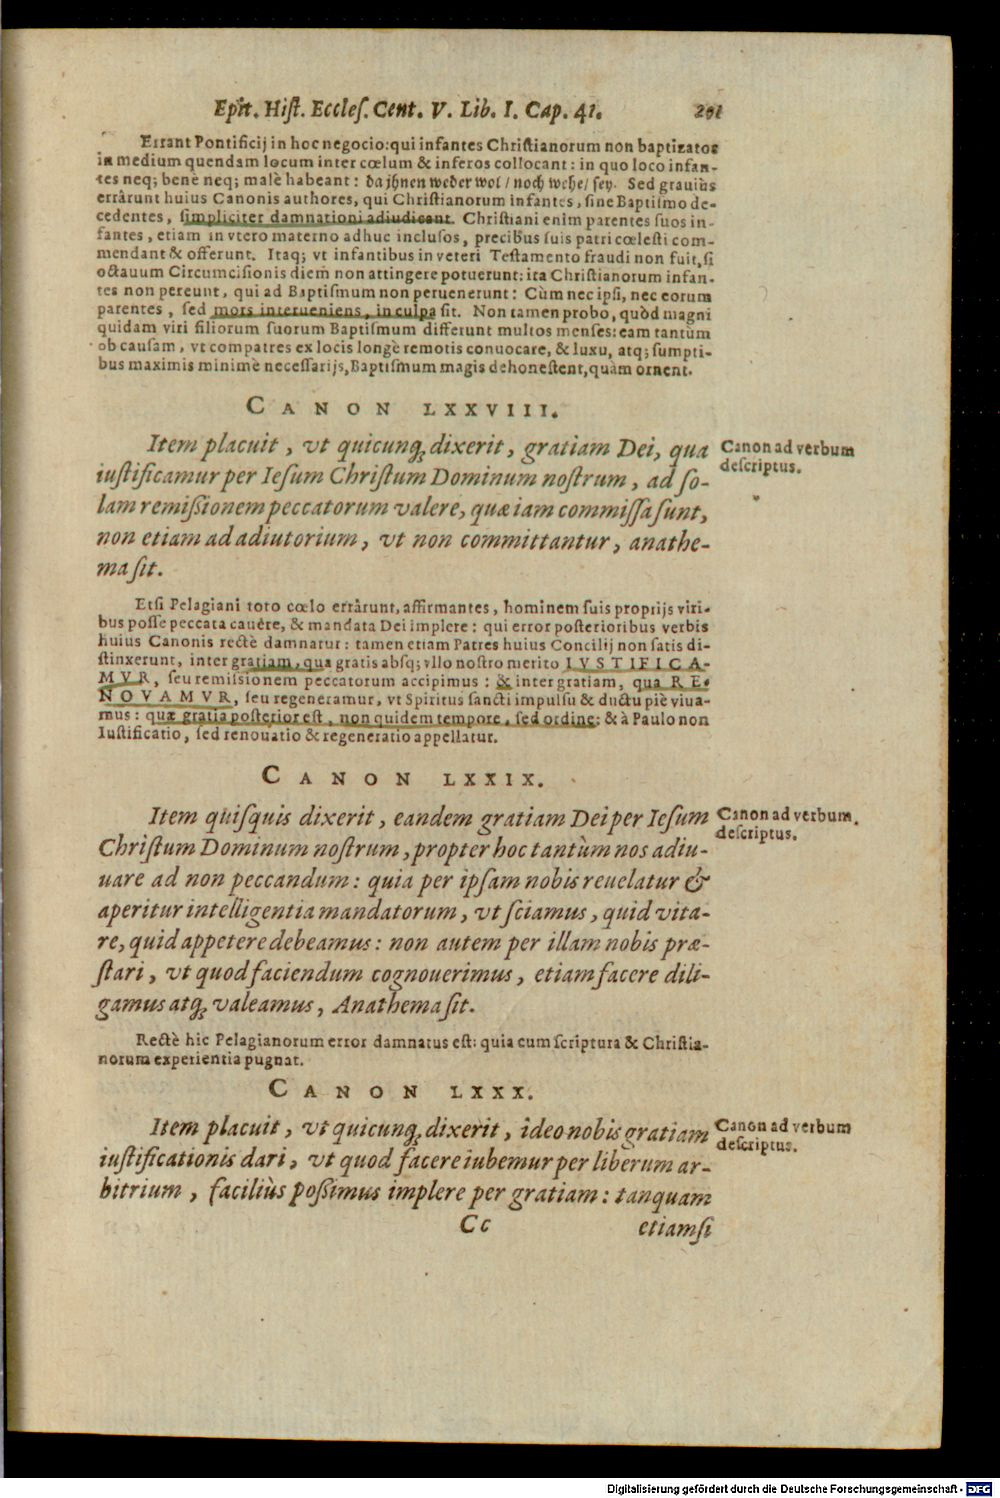 Epit. Hist. Eccles. Cent. V. Lib. I. Cap. 41. 201
Errant Pontificij in hoc negocio: qui infantes Christianorum non baptizatos
in medium quendam locum inter cœlum & inferos collocant: in quo loco infan-
tes neq; benè neq; malè habeant: da jhnen weder wol / noch wehe / sey. Sed grauiùs
errârunt huius Canonis authores, qui Christianorum infantes, sine Baptismo de-
cedentes, simpliciter damnationi adiudicant. Christiani enim parentes suos in-
fantes, etiam in vtero materno adhuc inclusos, precibus suis patri cœlesti com-
mendant & offerunt. Itaq; vt infantibus in veteri Testamento fraudi non fuit, si
octauum Circumcisionis diem non attingere potuerunt: ita Christianorum infan-
tes non pereunt, qui ad Baptismum non peruenerunt: Cùm nec ipsi, nec eorum
parentes, sed mors interueniens, in culpa sit. Non tamen probo, quòd magni
quidam viri filiorum suorum Baptismum differunt multos menses: eam tantùm
ob causam, vt compatres ex locis longè remotis conuocare, & luxu, atq; sumpti-
bus maximis minimè necessarijs, Baptismum magis dehonestent, quàm ornent.
CANON LXXVIII.
Item placuit, vt quicunq; dixerit, gratiam Dei, qua
iustificamur per Iesum Christum Dominum nostrum, ad so-
lam remißionem peccatorum valere, quæ iam commissa sunt,
non etiam ad adiutorium, vt non committantur, anathe-
ma sit.
Canon ad verbum
descriptus.
Etsi Pelagiani toto cœlo errârunt, affirmantes, hominem suis proprijs viri-
bus posse peccata cauêre, & mandata Dei implere: qui error posterioribus verbis
huius Canonis rectè damnatur: tamen etiam Patres huius Concilij non satis di-
stinxerunt, inter gratiam, qua gratis absq; vllo nostro merito IVSTIFICA-
MVR, seu remissionem peccatorum accipimus: & inter gratiam, qua RE-
NOVAMVR, seu regeneramur, vt Spiritus sancti impulsu & ductu piè viua-
mus: quæ gratia posterior est, non quidem tempore, sed ordine: & à Paulo non
Iustificatio, sed renouatio & regeneratio appellatur.
CANON LXXIX.
Item quisquis dixerit, eandem gratiam Dei per Iesum
Christum Dominum nostrum, propter hoc tantùm nos adiu-
uare ad non peccandum: quia per ipsam nobis reuelatur &
aperitur intelligentia mandatorum, vt sciamus, quid vita-
re, quid appetere debeamus: non autem per illam nobis præ-
stari, vt quod faciendum cognouerimus, etiam facere dili-
gamus atq; valeamus, Anathema sit.
Canon ad verbum.
descriptus.
Rectè hic Pelagianorum error damnatus est: quia cum scriptura & Christia-
norum experientia pugnat.
CANON LXXX.
Item placuit, vt quicunq; dixerit, ideo nobis gratiam
iustificationis dari, vt quod facere iubemur per liberum ar-
bitrium, faciliùs poßimus implere per gratiam: tanquam
Canon ad verbum
descriptus.
Cc etiamsi
Digitalisierung gefördert durch die Deutsche Forschungsgemeinschaft - DFG